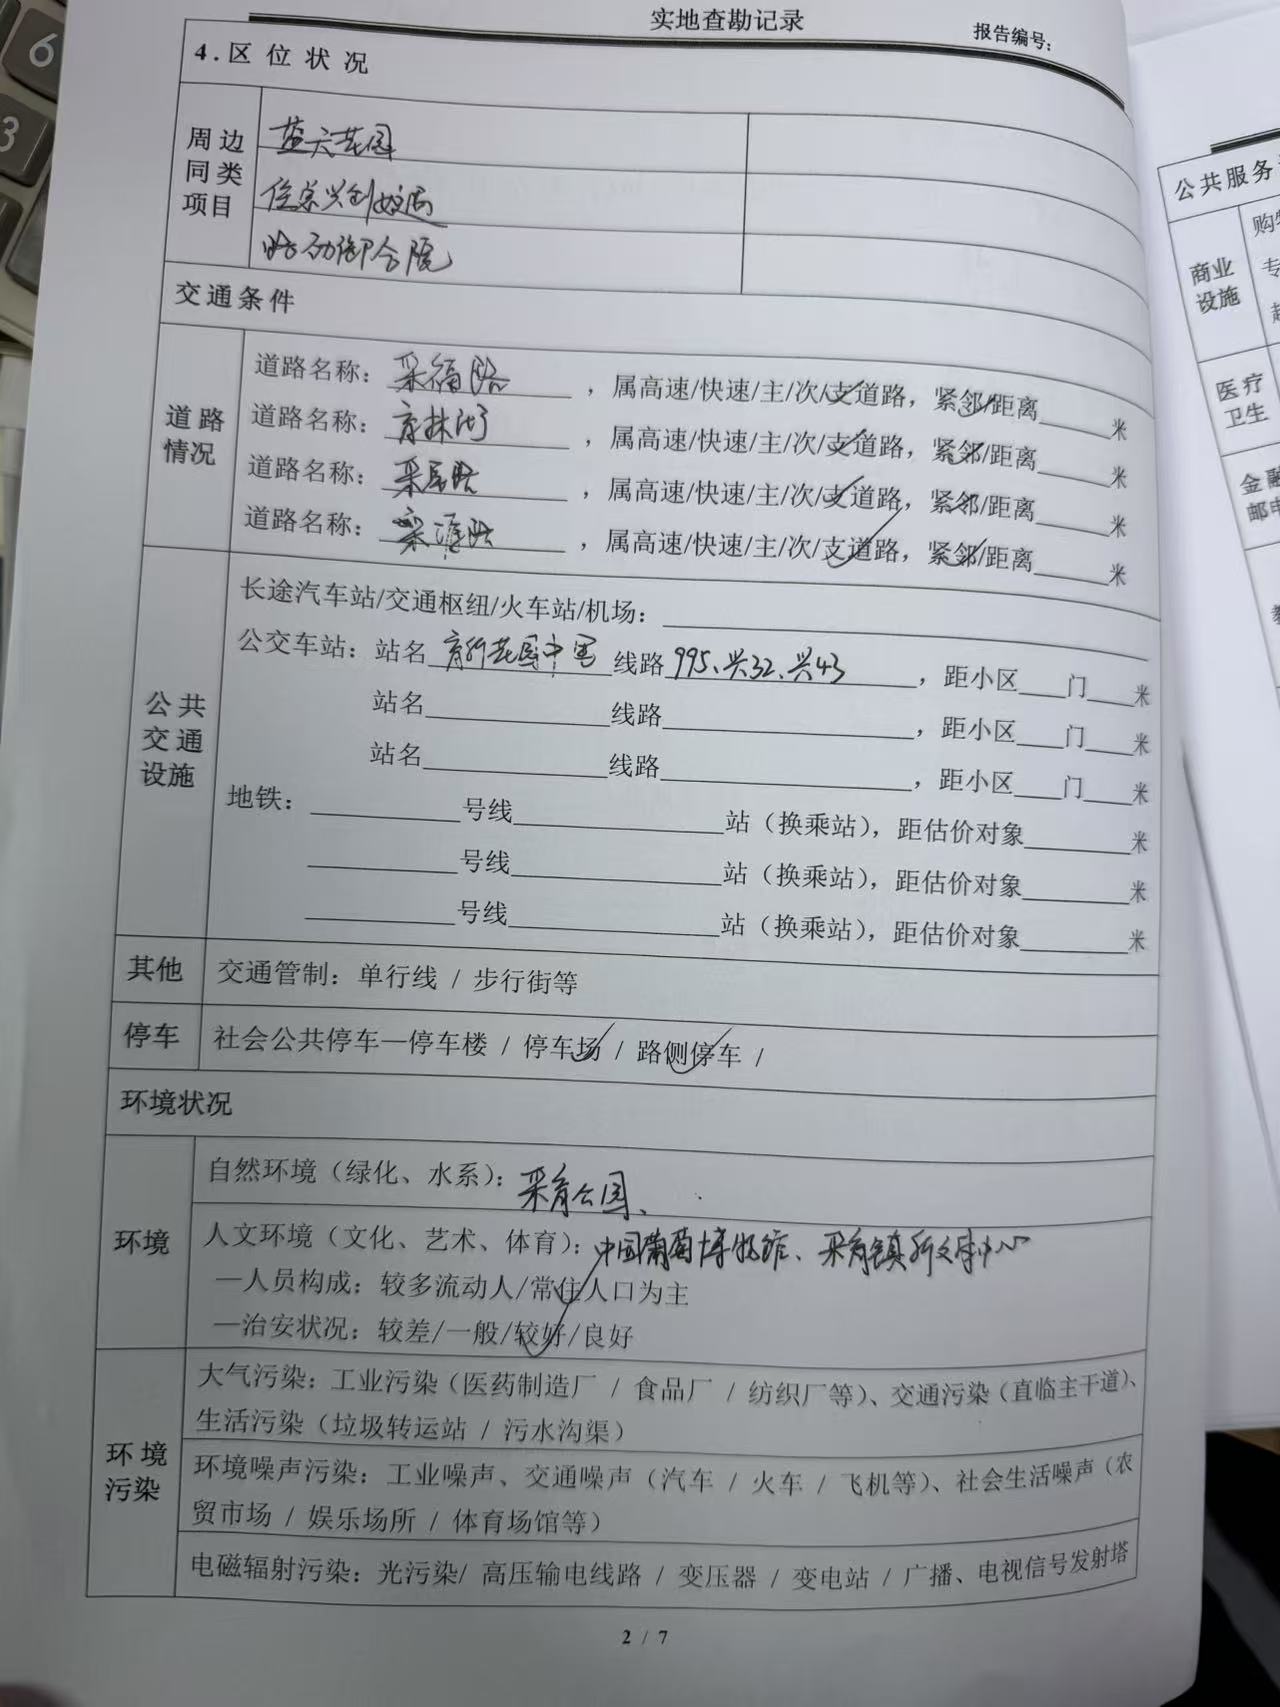 实地查勘记录
报告编号：
4.区 位 状 况
周 边
同 类
项目
蓝天花园
御合院
交通条件
道 路
情况
道路名称：采福路，属高速/快速/主/次/支道路，紧邻/距离____米
道路名称：育林街，属高速/快速/主/次/支道路，紧邻/距离____米
道路名称：采辰路，属高速/快速/主/次/支道路，紧邻/距离____米
道路名称：采淮路，属高速/快速/主/次/支道路，紧邻/距离____米
公 共
交 通
设施
长途汽车站/交通枢纽/火车站/机场：____
公交车站：站名 育新花园中区 线路 995、兴32、兴43，距小区____门____米
站名____线路____，距小区____门____米
站名____线路____，距小区____门____米
地铁：____号线____站（换乘站），距估价对象____米
____号线____站（换乘站），距估价对象____米
____号线____站（换乘站），距估价对象____米
其他
交通管制：单行线 / 步行街等
停车
社会公共停车—停车楼 / 停车场 / 路侧停车 /
环境状况
环境
自然环境（绿化、水系）：采育公园、
人文环境（文化、艺术、体育）：中国葡萄博物馆、采育镇新文体中心
—人员构成：较多流动人/常住人口为主
—治安状况：较差/一般/较好/良好
环 境
污染
大气污染：工业污染（医药制造厂 / 食品厂 / 纺织厂等）、交通污染（直临主干道）、
生活污染（垃圾转运站 / 污水沟渠）
环境噪声污染：工业噪声、交通噪声（汽车 / 火车 / 飞机等）、社会生活噪声（农
贸市场 / 娱乐场所 / 体育场馆等）
电磁辐射污染：光污染/ 高压输电线路 / 变压器 / 变电站 / 广播、电视信号发射塔
2 / 7
公共服务
商业
设施
购物
专
医疗
卫生
金融
邮电
6
3